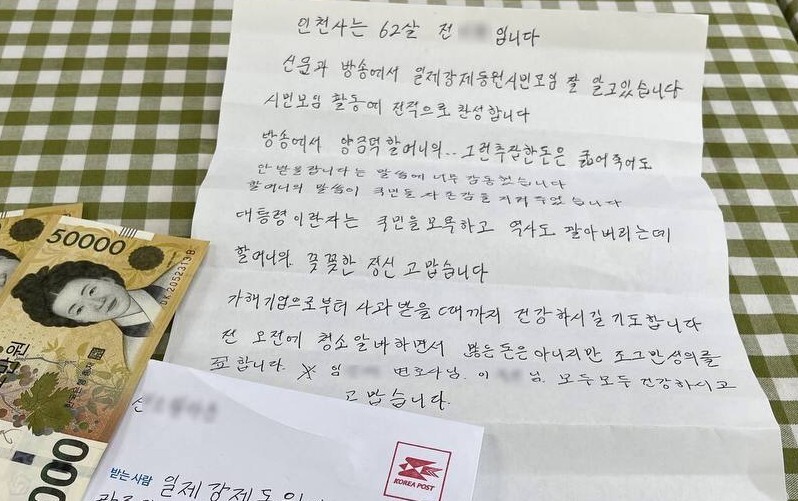 인천사는 62살 전 입니다
신문과 방송에서 일제강제동원시민모임 잘 알고있습니다
시민모임 활동에 전적으로 찬성합니다
방송에서 양금덕할머니의.. 그런추잡한돈은 굶어죽어도
안받을랍니다는 말씀에 너무 감동했습니다
할머니의 말씀이 국민들 자존감을 지켜주었습니다
대통령이란자는 국민을모욕하고 역사도 팔아버리는데
할머니의 꼿꼿한 정신 고맙습니다
가해기업으로부터 사과받을때까지 건강하시길 기도합니다
전 오전에 청소알바하면서 많은돈은아니지만 조그만성의를
표합니다. 임 변호사님. 이 님. 모두모두 건강하시고
고맙습니다.
50000
DK2052313B
만원
한국은행 총재
000
KOREA POST
받는 사람 일제강제동원